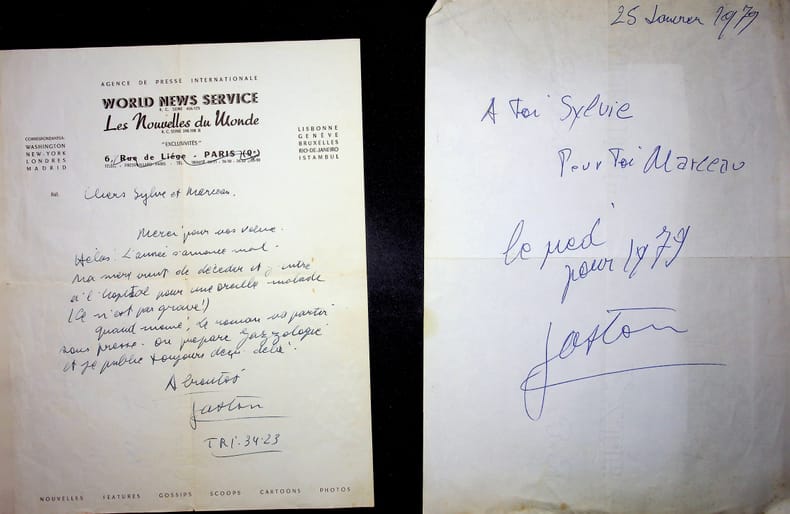 AGENCE DE PRESSE INTERNATIONALE
WORLD NEWS SERVICE
R. C. SEINE
Les Nouvelles du Monde
R. C. SEINE
"EXCLUSIVITÉS"
6, Rue de Liége - PARIS (9e)
CORRESPONDANTS A:
WASHINGTON
NEW-YORK
LONDRES
MADRID
LISBONNE
GENÈVE
BRUXELLES
RIO-DE-JANEIRO
ISTANBUL
Réf.
Chers Sylvie et Marceau.
Merci pour vos vœux.
Hélas! L'année s'annonce mal.
Ma mère vient de décéder et j'entre
à l'hôpital pour une oreille malade
(Ce n'est pas grave!)
quand même, le roman va partir
sous presse. On prépare Gazzologie
et je publie toujours deçi delà.
A bientôt
Gaston
TRI.34.23
NOUVELLES FEATURES GOSSIPS SCOOPS CARTOONS PHOTOS
25 Janvier 1979
A toi Sylvie
Pour toi Marceau
le pied
pour 1979
Gaston